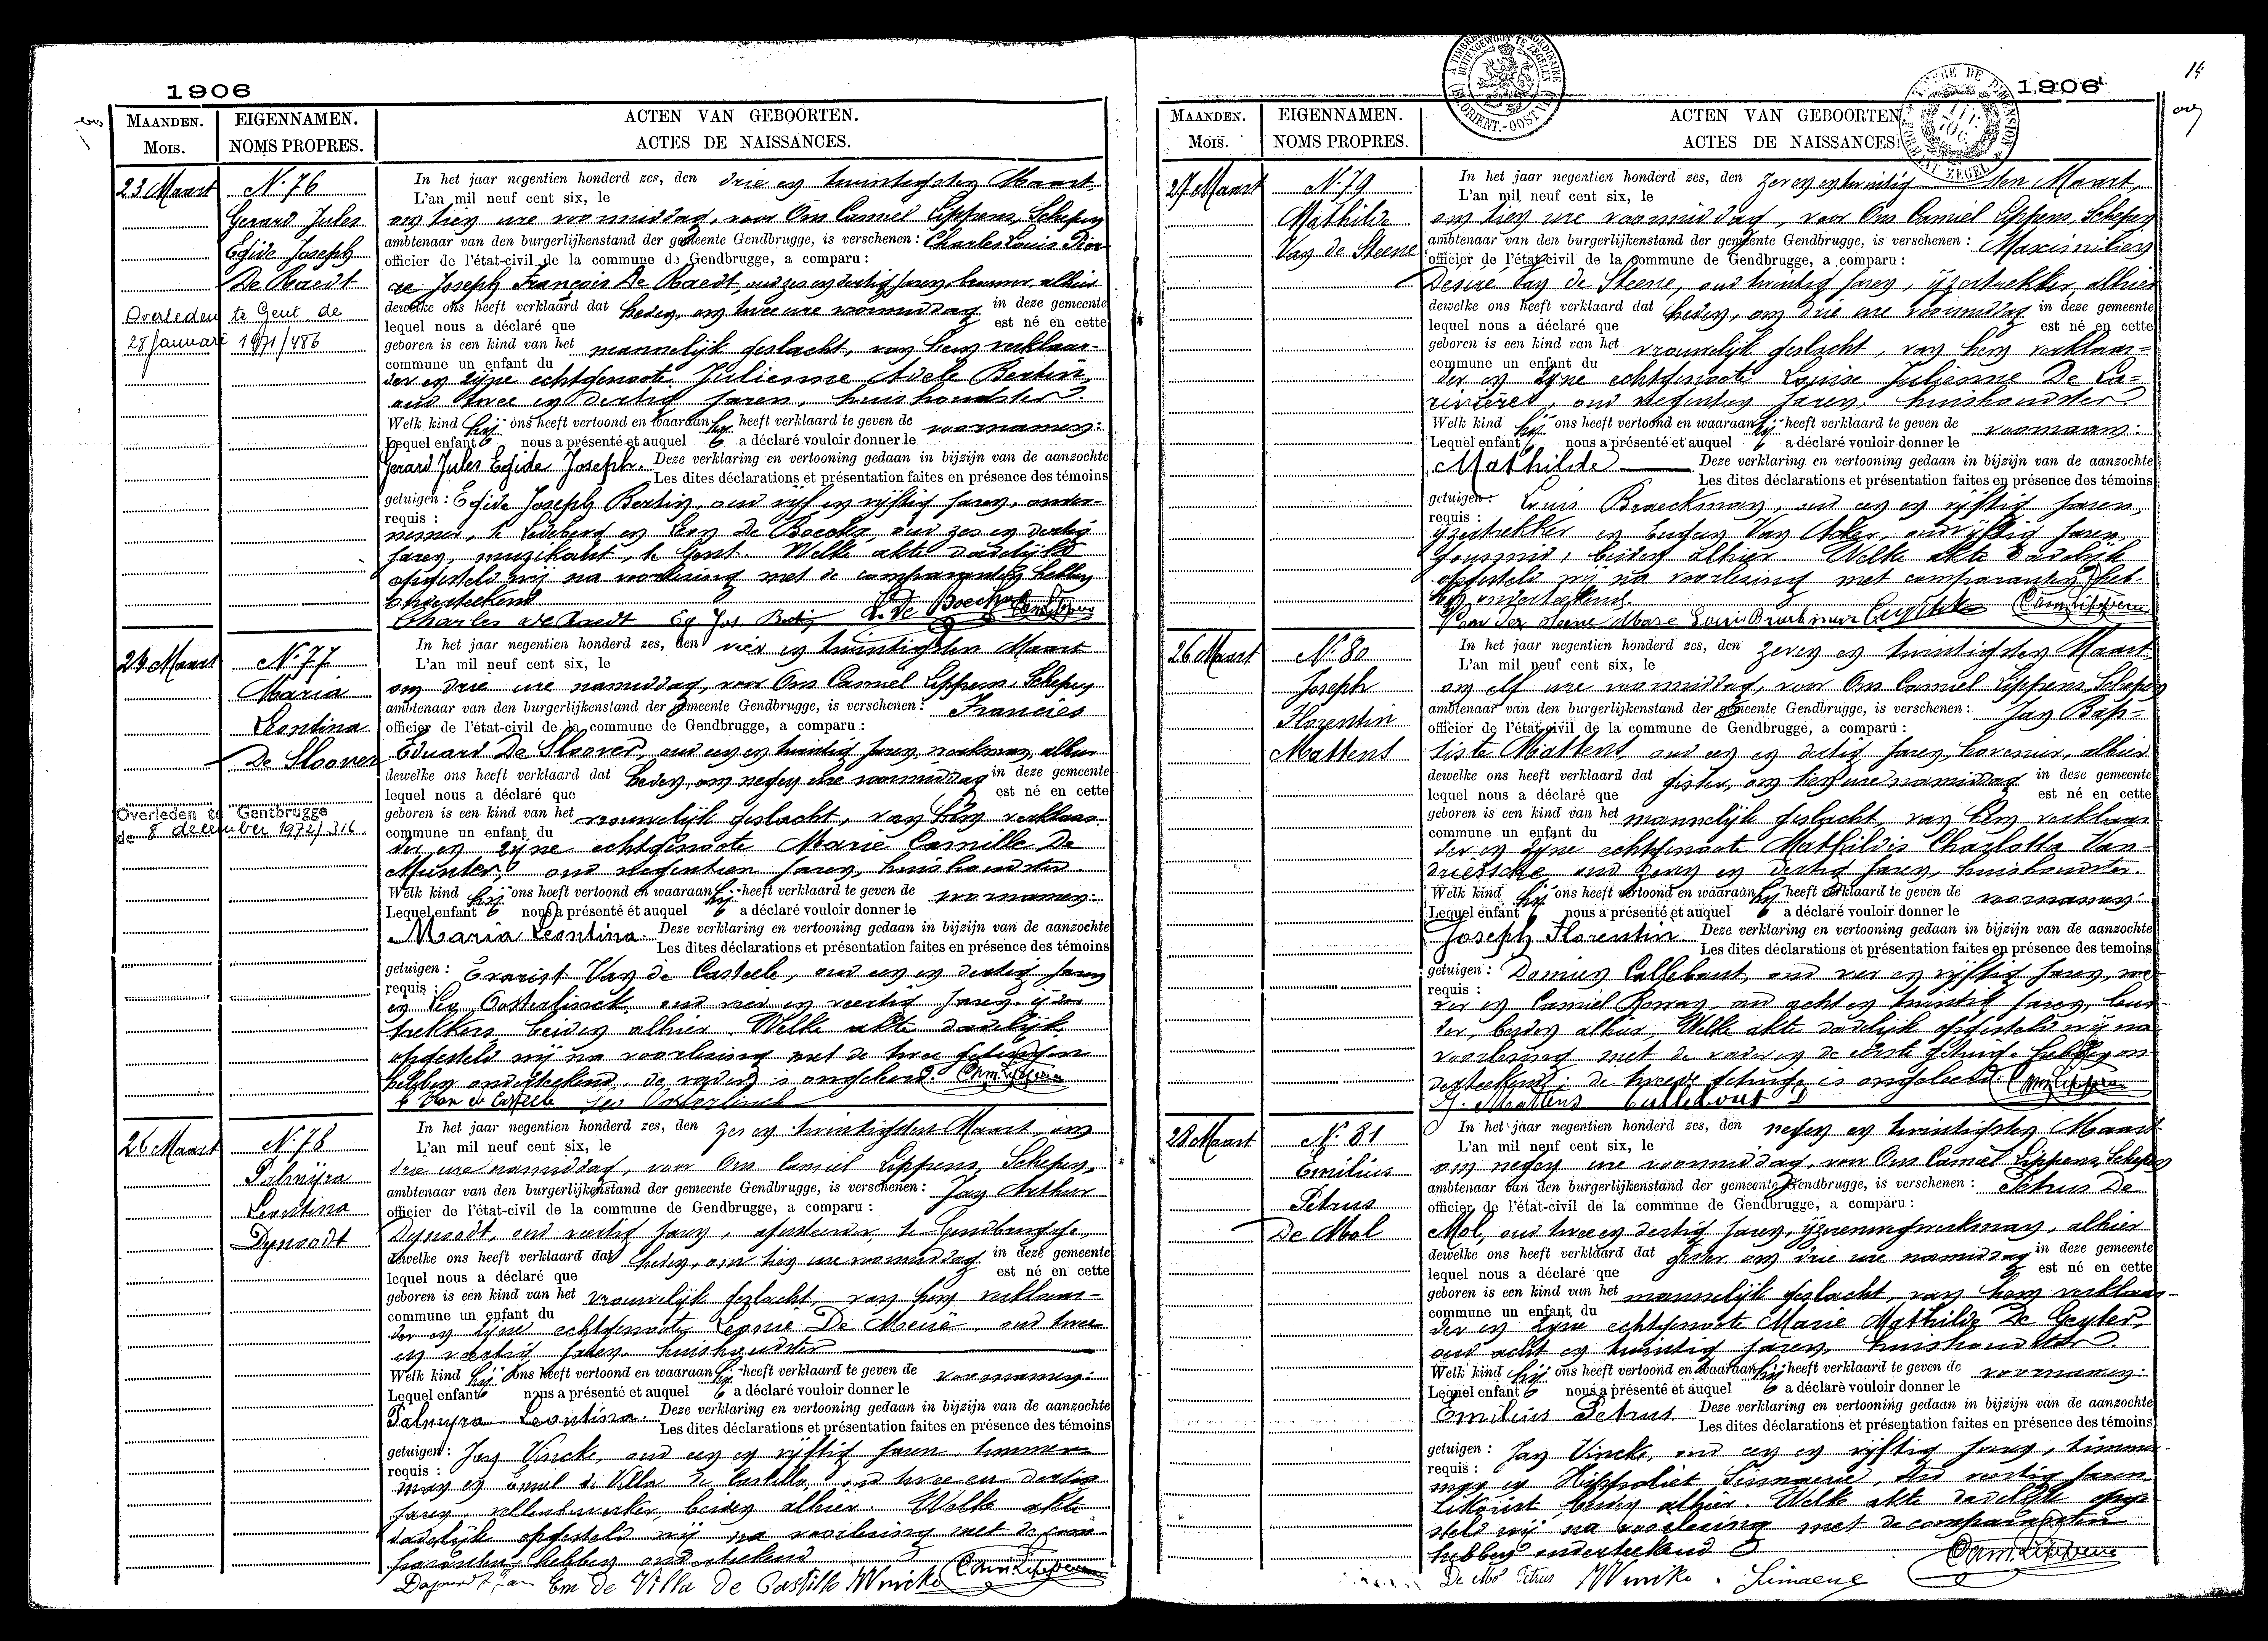 1906
MAANDEN.
MOIS.
EIGENNAMEN.
NOMS PROPRES.
ACTEN VAN GEBOORTEN.
ACTES DE NAISSANCES.
23 Maart
N. 76
Gerard Jules
Egide Joseph
De Raedt
Overleden te Gent de
28 Januari 1971/486
In het jaar negentien honderd zes, den drie en twintigsten Maart
L'an mil neuf cent six, le
om tien ure voormiddag, voor Ons Camiel Lippens, Schepen
ambtenaar van den burgerlijkenstand der gemeente Gendbrugge, is verschenen : Charles Louis
officier de l'état-civil de la commune de Gendbrugge, a comparu :
Joseph François De Raedt, oud zes en dertig jaren, brouwer, alhier
dewelke ons heeft verklaard dat heden, om twee ure voormiddag in deze gemeente
lequel nous a déclaré que est né en cette
geboren is een kind van het mannelijk geslacht, van hem verklaar-
commune un enfant du
der en zijne echtgenoote Julienne Adele Bertin,
oud twee en dertig jaren, huishoudster
Welk kind hij ons heeft vertoond en waaraan hij heeft verklaard te geven de voornamen:
Lequel enfant nous a présenté et auquel a déclaré vouloir donner le
Gerard Jules Egide Joseph. Deze verklaring en vertooning gedaan in bijzijn van de aanzochte
Les dites déclarations et présentation faites en présence des témoins
getuigen : Egide Joseph Bertin, oud vijf en vijftig jaren, onder-
requis :
nemer, te Ledeberg en Leon De Boecke, oud zes en dertig
jaren, muzikant, te Gent. Welke akte dadelijk
opgesteld wij na voorlezing met de comparanten hebben
onderteekend
Charles De Raedt Eg Jos Bertin L. De Boecke Cam. Lippens
24 Maart
N. 77
Maria
Leontina
De Sloover
Overleden te Gentbrugge
de 8 december 1972/316.
In het jaar negentien honderd zes, den vier en twintigsten Maart
L'an mil neuf cent six, le
om drie ure namiddag, voor Ons Camiel Lippens, Schepen
ambtenaar van den burgerlijkenstand der gemeente Gendbrugge, is verschenen : Francies
officier de l'état-civil de la commune de Gendbrugge, a comparu :
Eduard De Sloover, oud een en twintig jaren, werkman, alhier
dewelke ons heeft verklaard dat heden, om negen ure voormiddag in deze gemeente
lequel nous a déclaré que est né en cette
geboren is een kind van het vrouwelijk geslacht, van hem verklaar-
commune un enfant du
der en zijne echtgenoote Marie Camille De
Munter, oud negentien jaren, huishoudster
Welk kind hij ons heeft vertoond en waaraan hij heeft verklaard te geven de voornamen:
Lequel enfant nous a présenté et auquel a déclaré vouloir donner le
Maria Leontina. Deze verklaring en vertooning gedaan in bijzijn van de aanzochte
Les dites déclarations et présentation faites en présence des témoins
getuigen : Evarist Van de Casteele, oud een en dertig jaren
requis :
en Leo Oosterlinck, oud vier en veertig jaren, ijzer
trekkers beiden alhier. Welke akte dadelijk
opgesteld wij na voorlezing met de twee getuigen
hebben onderteekend, de vader is ongeleerd. Cam. Lippens
E Van de Casteele Leo Oosterlinck
26 Maart
N. 78
Palmyra
Leontina
Dynoodt
In het jaar negentien honderd zes, den zes en twintigsten Maart, om
L'an mil neuf cent six, le
drie ure namiddag, voor Ons Camiel Lippens, Schepen,
ambtenaar van den burgerlijkenstand der gemeente Gendbrugge, is verschenen : Jan Arthur
officier de l'état-civil de la commune de Gendbrugge, a comparu :
Dynoodt, oud veertig jaren, te Gendbrugge,
dewelke ons heeft verklaard dat heden, om tien ure voormiddag in deze gemeente
lequel nous a déclaré que est né en cette
geboren is een kind van het vrouwelijk geslacht, van hem verklaar-
commune un enfant du
der en zijne echtgenoote Leonie De Meue, oud twee
en veertig jaren, huishoudster
Welk kind hij ons heeft vertoond en waaraan hij heeft verklaard te geven de voornamen:
Lequel enfant nous a présenté et auquel a déclaré vouloir donner le
Palmyra Leontina. Deze verklaring en vertooning gedaan in bijzijn van de aanzochte
Les dites déclarations et présentation faites en présence des témoins
getuigen : Jan Vincke, oud een en vijftig jaren timmer
requis :
man en Emiel de Villa de Castillo, oud twee en dertig
jaren, beiden alhier. Welke akte
dadelijk opgesteld wij na voorlezing met de com-
paranten hebben onderteekend
Dynoodt Jan Em de Villa de Castillo JVincke Cam. Lippens
1906
14
MAANDEN.
MOIS.
EIGENNAMEN.
NOMS PROPRES.
ACTEN VAN GEBOORTEN
ACTES DE NAISSANCES.
27 Maart
N. 79
Mathilde
Van de Steene
In het jaar negentien honderd zes, den zeven en twintigsten Maart,
L'an mil neuf cent six, le
om tien ure voormiddag, voor Ons Camiel Lippens, Schepen
ambtenaar van den burgerlijkenstand der gemeente Gendbrugge, is verschenen : Maximilien
officier de l'état-civil de la commune de Gendbrugge, a comparu :
Désiré Van de Steene, oud twintig jaren, ijzertrekker, alhier
dewelke ons heeft verklaard dat heden, om drie ure voormiddag in deze gemeente
lequel nous a déclaré que est né en cette
geboren is een kind van het vrouwelijk geslacht, van hem verklaar=
commune un enfant du
der en zijne echtgenoote Louise Julienne De La=
rivieres, oud negentien jaren, huishoudster
Welk kind hij ons heeft vertoond en waaraan hij heeft verklaard te geven de voornaam:
Lequel enfant nous a présenté et auquel a déclaré vouloir donner le
Mathilde Deze verklaring en vertooning gedaan in bijzijn van de aanzochte
Les dites déclarations et présentation faites en présence des témoins
getuigen : Louis Braeckman, oud een en vijftig jaren,
requis :
ijzertrekker en Van Acker, oud vijftig jaren
beiden alhier. Welke akte dadelijk
opgesteld wij na voorlezing met comparanten heb-
ben onderteekend.
Van den steene Maxe Louis Braeckman Cam. Lippens
26 Maart
N. 80
Joseph
Florentin
Mattens
In het jaar negentien honderd zes, den zeven en twintigsten Maart
L'an mil neuf cent six, le
om elf ure voormiddag, voor Ons Camiel Lippens, Schepen
ambtenaar van den burgerlijkenstand der gemeente Gendbrugge, is verschenen : Jan Bap-
officier de l'état-civil de la commune de Gendbrugge, a comparu :
tiste Mattens, oud een en dertig jaren, hovenier, alhier
dewelke ons heeft verklaard dat gister, om tien ure namiddag in deze gemeente
lequel nous a déclaré que est né en cette
geboren is een kind van het mannelijk geslacht, van hem verklaar
commune un enfant du
der en zijne echtgenoote Mathildis Charlotta Van-
driessche, oud zeven en dertig jaren, huishoudster.
Welk kind hij ons heeft vertoond en waaraan hij heeft verklaard te geven de voornamen:
Lequel enfant nous a présenté et auquel a déclaré vouloir donner le
Joseph Florentin. Deze verklaring en vertooning gedaan in bijzijn van de aanzochte
Les dites déclarations et présentation faites en présence des temoins
getuigen : Damien Callebaut, oud vier en vijftig jaren,
requis :
en Camiel oud acht en twintig jaren,
beiden alhier. Welke akte dadelijk opgesteld wij na
voorlezing met de vader en de eerste getuige hebben on-
derteekend; de tweede getuige is ongeleerd. Cam. Lippens
J. Mattens Callebaut D
28 Maart
N. 81
Emilius
Petrus
De Mol
In het jaar negentien honderd zes, den negen en twintigsten Maart
L'an mil neuf cent six, le
om negen ure voormiddag, voor Ons Camiel Lippens, Schepen
ambtenaar van den burgerlijkenstand der gemeente Gendbrugge, is verschenen : Petrus De
officier de l'état-civil de la commune de Gendbrugge, a comparu :
Mol, oud twee en dertig jaren, ijzerenwegwerkman, alhier
dewelke ons heeft verklaard dat gister om drie ure namiddag in deze gemeente
lequel nous a déclaré que est né en cette
geboren is een kind van het mannelijk geslacht, van hem verklaar-
commune un enfant du
der en zijne echtgenoote Marie Mathilde De Geyter,
oud acht en twintig jaren, huishoudster
Welk kind hij ons heeft vertoond en waaraan hij heeft verklaard te geven de voornamen:
Lequel enfant nous a présenté et auquel a déclaré vouloir donner le
Emilius Petrus Deze verklaring en vertooning gedaan in bijzijn van de aanzochte
Les dites déclarations et présentation faites en présence des témoins
getuigen : Jan Vincke, oud een en vijftig jaren, timmer
requis :
man en Hippoliet Simaeue, oud veertig jaren
beiden alhier. Welke akte dadelijk opge-
steld wij na voorlezing met de comparanten
hebben onderteekend
De Mol Petrus JVincke. Simaeue Cam. Lippens